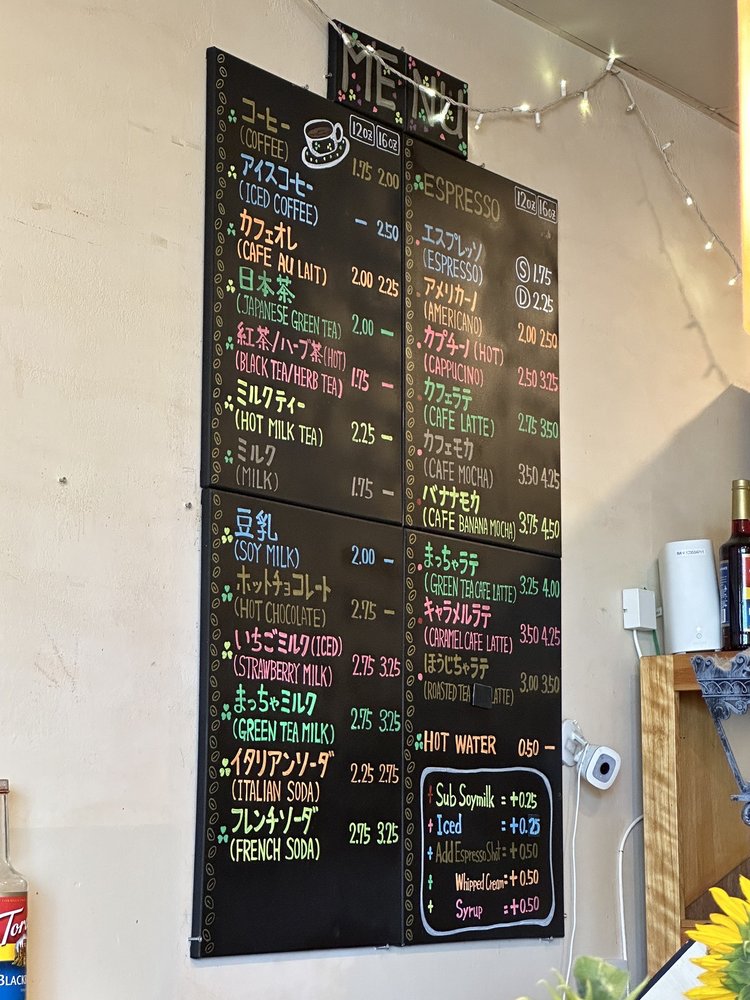 MENU
コーヒー 12oz 16oz
(COFFEE) 1.75 2.00
アイスコーヒー
(ICED COFFEE) — 2.50
カフェオレ
(CAFE AU LAIT) 2.00 2.25
日本茶
(JAPANESE GREEN TEA) 2.00 —
紅茶/ハーブ茶(HOT)
(BLACK TEA/HERB TEA) 1.75 —
ミルクティー
(HOT MILK TEA) 2.25 —
ミルク
(MILK) 1.75 —
豆乳
(SOY MILK) 2.00 —
ホットチョコレート
(HOT CHOCOLATE) 2.75 —
いちごミルク(ICED)
(STRAWBERRY MILK) 2.75 3.25
まっちゃミルク
(GREEN TEA MILK) 2.75 3.25
イタリアンソーダ
(ITALIAN SODA) 2.25 2.75
フレンチソーダ
(FRENCH SODA) 2.75 3.25
ESPRESSO 12oz 16oz
エスプレッソ
(ESPRESSO) S 1.75
D 2.25
アメリカーノ
(AMERICANO) 2.00 2.50
カプチーノ(HOT)
(CAPPUCINO) 2.50 3.25
カフェラテ
(CAFE LATTE) 2.75 3.50
カフェモカ
(CAFE MOCHA) 3.50 4.25
バナナモカ
(CAFE BANANA MOCHA) 3.75 4.50
まっちゃラテ
(GREEN TEA CAFE LATTE) 3.25 4.00
キャラメルラテ
(CARAMEL CAFE LATTE) 3.50 4.25
ほうじちゃラテ
(ROASTED TEA LATTE) 3.00 3.50
HOT WATER 0.50 —
+ Sub Soymilk = +0.25
+ Iced = +0.25
+ Add Espresso Shot = +0.50
+ Whipped Cream = +0.50
+ Syrup = +0.50